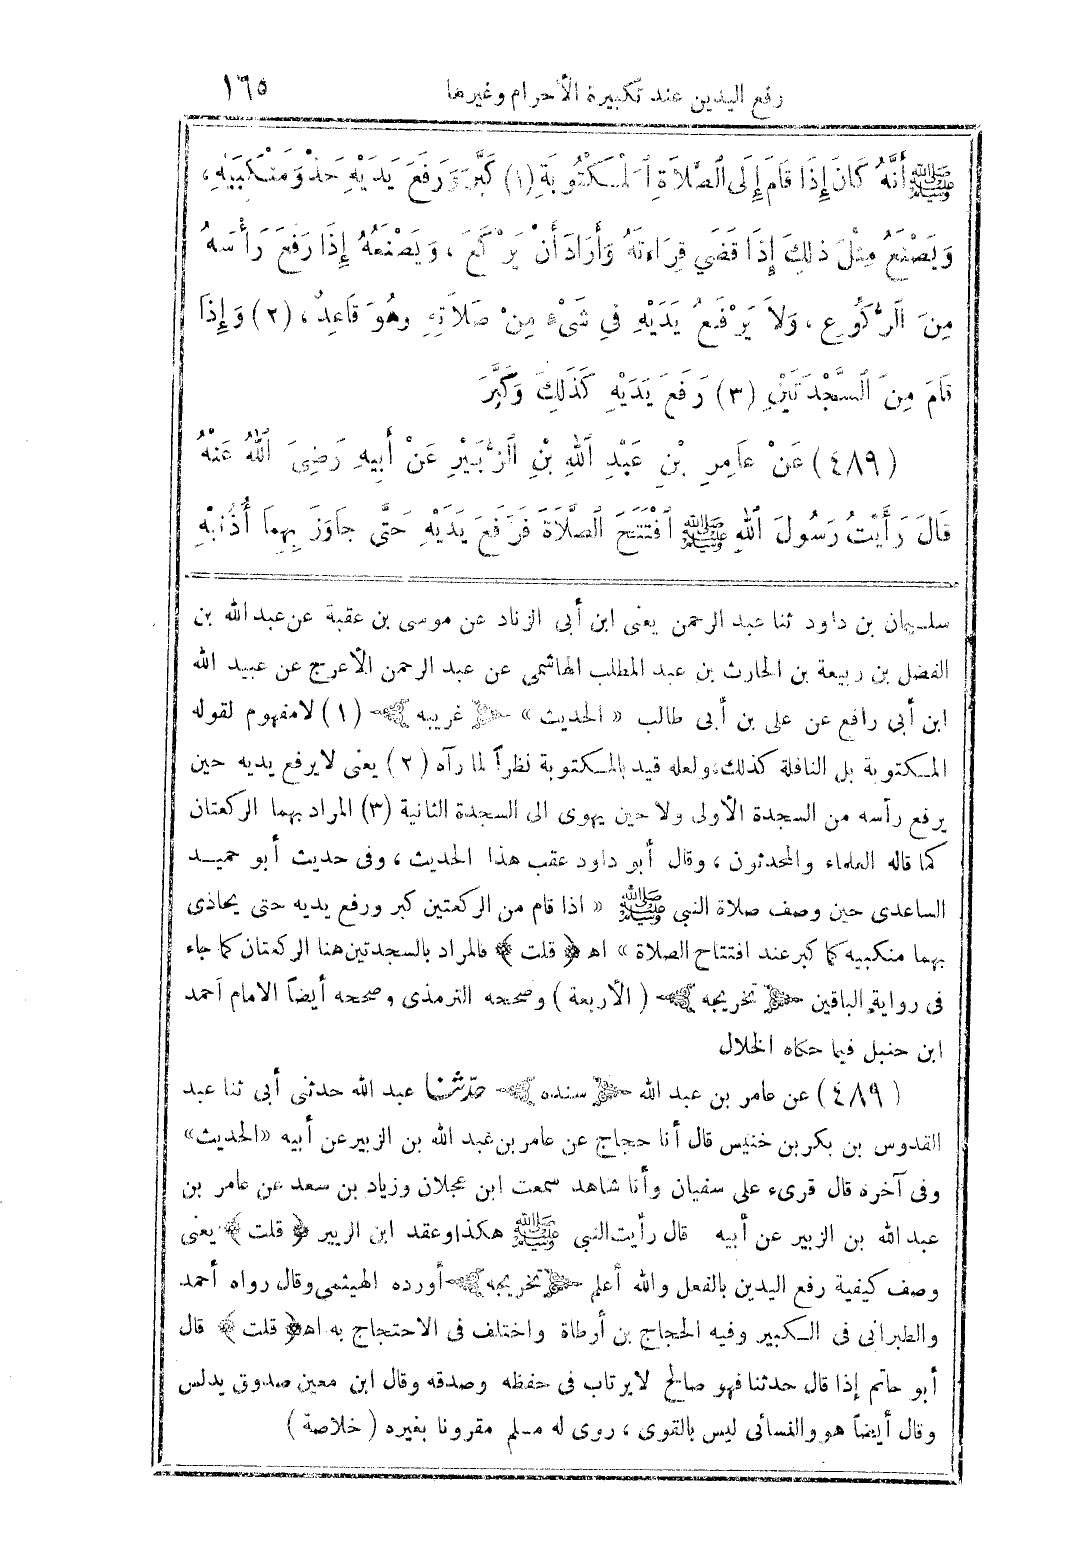 رفع اليدين عند تكبيرة الأحرام وغيرها ١٦٥
ﷺ أَنَّهُ كَانَ إِذَا قَامَ إِلَى ٱلصَّلَاةِ ٱلْمَكْتُوبَةِ (١) كَبَّرَ وَرَفَعَ يَدَيْهِ حَذْوَ مَنْكِبَيْهِ،
وَيَصْنَعُ مِثْلَ ذٰلِكَ إِذَا قَضَى قِرَاءَتَهُ وَأَرَادَ أَنْ يَرْكَعَ، وَيَصْنَعُهُ إِذَا رَفَعَ رَأْسَهُ
مِنَ ٱلرُّكُوعِ، وَلَا يَرْفَعُ يَدَيْهِ فِي شَيْءٍ مِنْ صَلَاتِهِ وَهُوَ قَاعِدٌ، (٢) وَإِذَا
قَامَ مِنَ ٱلسَّجْدَتَيْنِ (٣) رَفَعَ يَدَيْهِ كَذَلِكَ وَكَبَّرَ
(٤٨٩) عَنْ عَامِرِ بْنِ عَبْدِ ٱللهِ بْنِ ٱلزُّبَيْرِ عَنْ أَبِيهِ رَضِيَ ٱللهُ عَنْهُ
قَالَ رَأَيْتُ رَسُولَ ٱللهِ ﷺ ٱفْتَتَحَ ٱلصَّلَاةَ فَرَفَعَ يَدَيْهِ حَتَّى جَاوَزَ بِهِمَا أُذُنَيْهِ
سليمان بن داود ثنا عبد الرحمن يعنى ابن أبى الزناد عن موسى بن عقبة عن عبد الله بن
الفضل بن ربيعة بن الحارث بن عبد المطلب الهاشمى عن عبد الرحمن الأعرج عن عبيد الله
ابن أبي رافع عن على بن أبى طالب « الحديث » ﴿ غريبه ﴾ (١) لامفهوم لقوله
المكتوبة بل النافلة كذلك، ولعله قيد بالمكتوبة نظراً لما رآه (٢) يعنى لايرفع يديه حين
يرفع رأسه من السجدة الأولى ولا حين يهوى الى السجدة الثانية (٣) المراد بهما الركعتان
كما قاله العلماء والمحدثون، وقال أبو داود عقب هذا الحديث، وفى حديث أبو حميد
الساعدى حين وصف صلاة النبي ﷺ « اذا قام من الركعتين كبر ورفع يديه حتى يحاذى
بهما منكبيه كما كبر عند افتتاح الصلاة » اهـ ﴿ قلت ﴾ فالمراد بالسجدتين هنا الركعتان كما جاء
فى رواية الباقين ﴿ تخريجه ﴾ (الأربعة) وصححه الترمذى وصححه أيضاً الامام أحمد
ابن حنبل فيما حكاه الخلال
(٤٨٩) عن عامر بن عبد الله ﴿ سنده ﴾ حدّثنا عبد الله حدثنى أبى ثنا عبد
القدوس بن بكر بن خنيس قال أنا حجاج عن عامر بن عبد الله بن الزبير عن أبيه «الحديث»
وفى آخره قال قرىء على سفيان وأنا شاهد سمعت ابن عجلان وزياد بن سعد عن عامر بن
عبد الله بن الزبير عن أبيه قال رأيت النبى ﷺ هكذا وعقد ابن الزبير ﴿ قلت ﴾ يعنى
وصف كيفية رفع اليدين بالفعل والله أعلم ﴿ تخريجه ﴾ أورده الهيثمى وقال رواه أحمد
والطبرانى فى الكبير وفيه الحجاج بن أرطاة واختلف فى الاحتجاج به اهـ ﴿ قلت ﴾ قال
أبو حاتم إذا قال حدثنا فهو صالح لايرتاب فى حفظه وصدقه وقال ابن معين صدوق يدلس
وقال أيضاً هو والنسائى ليس بالقوى، روى له مسلم مقرونا بغيره (خلاصة)